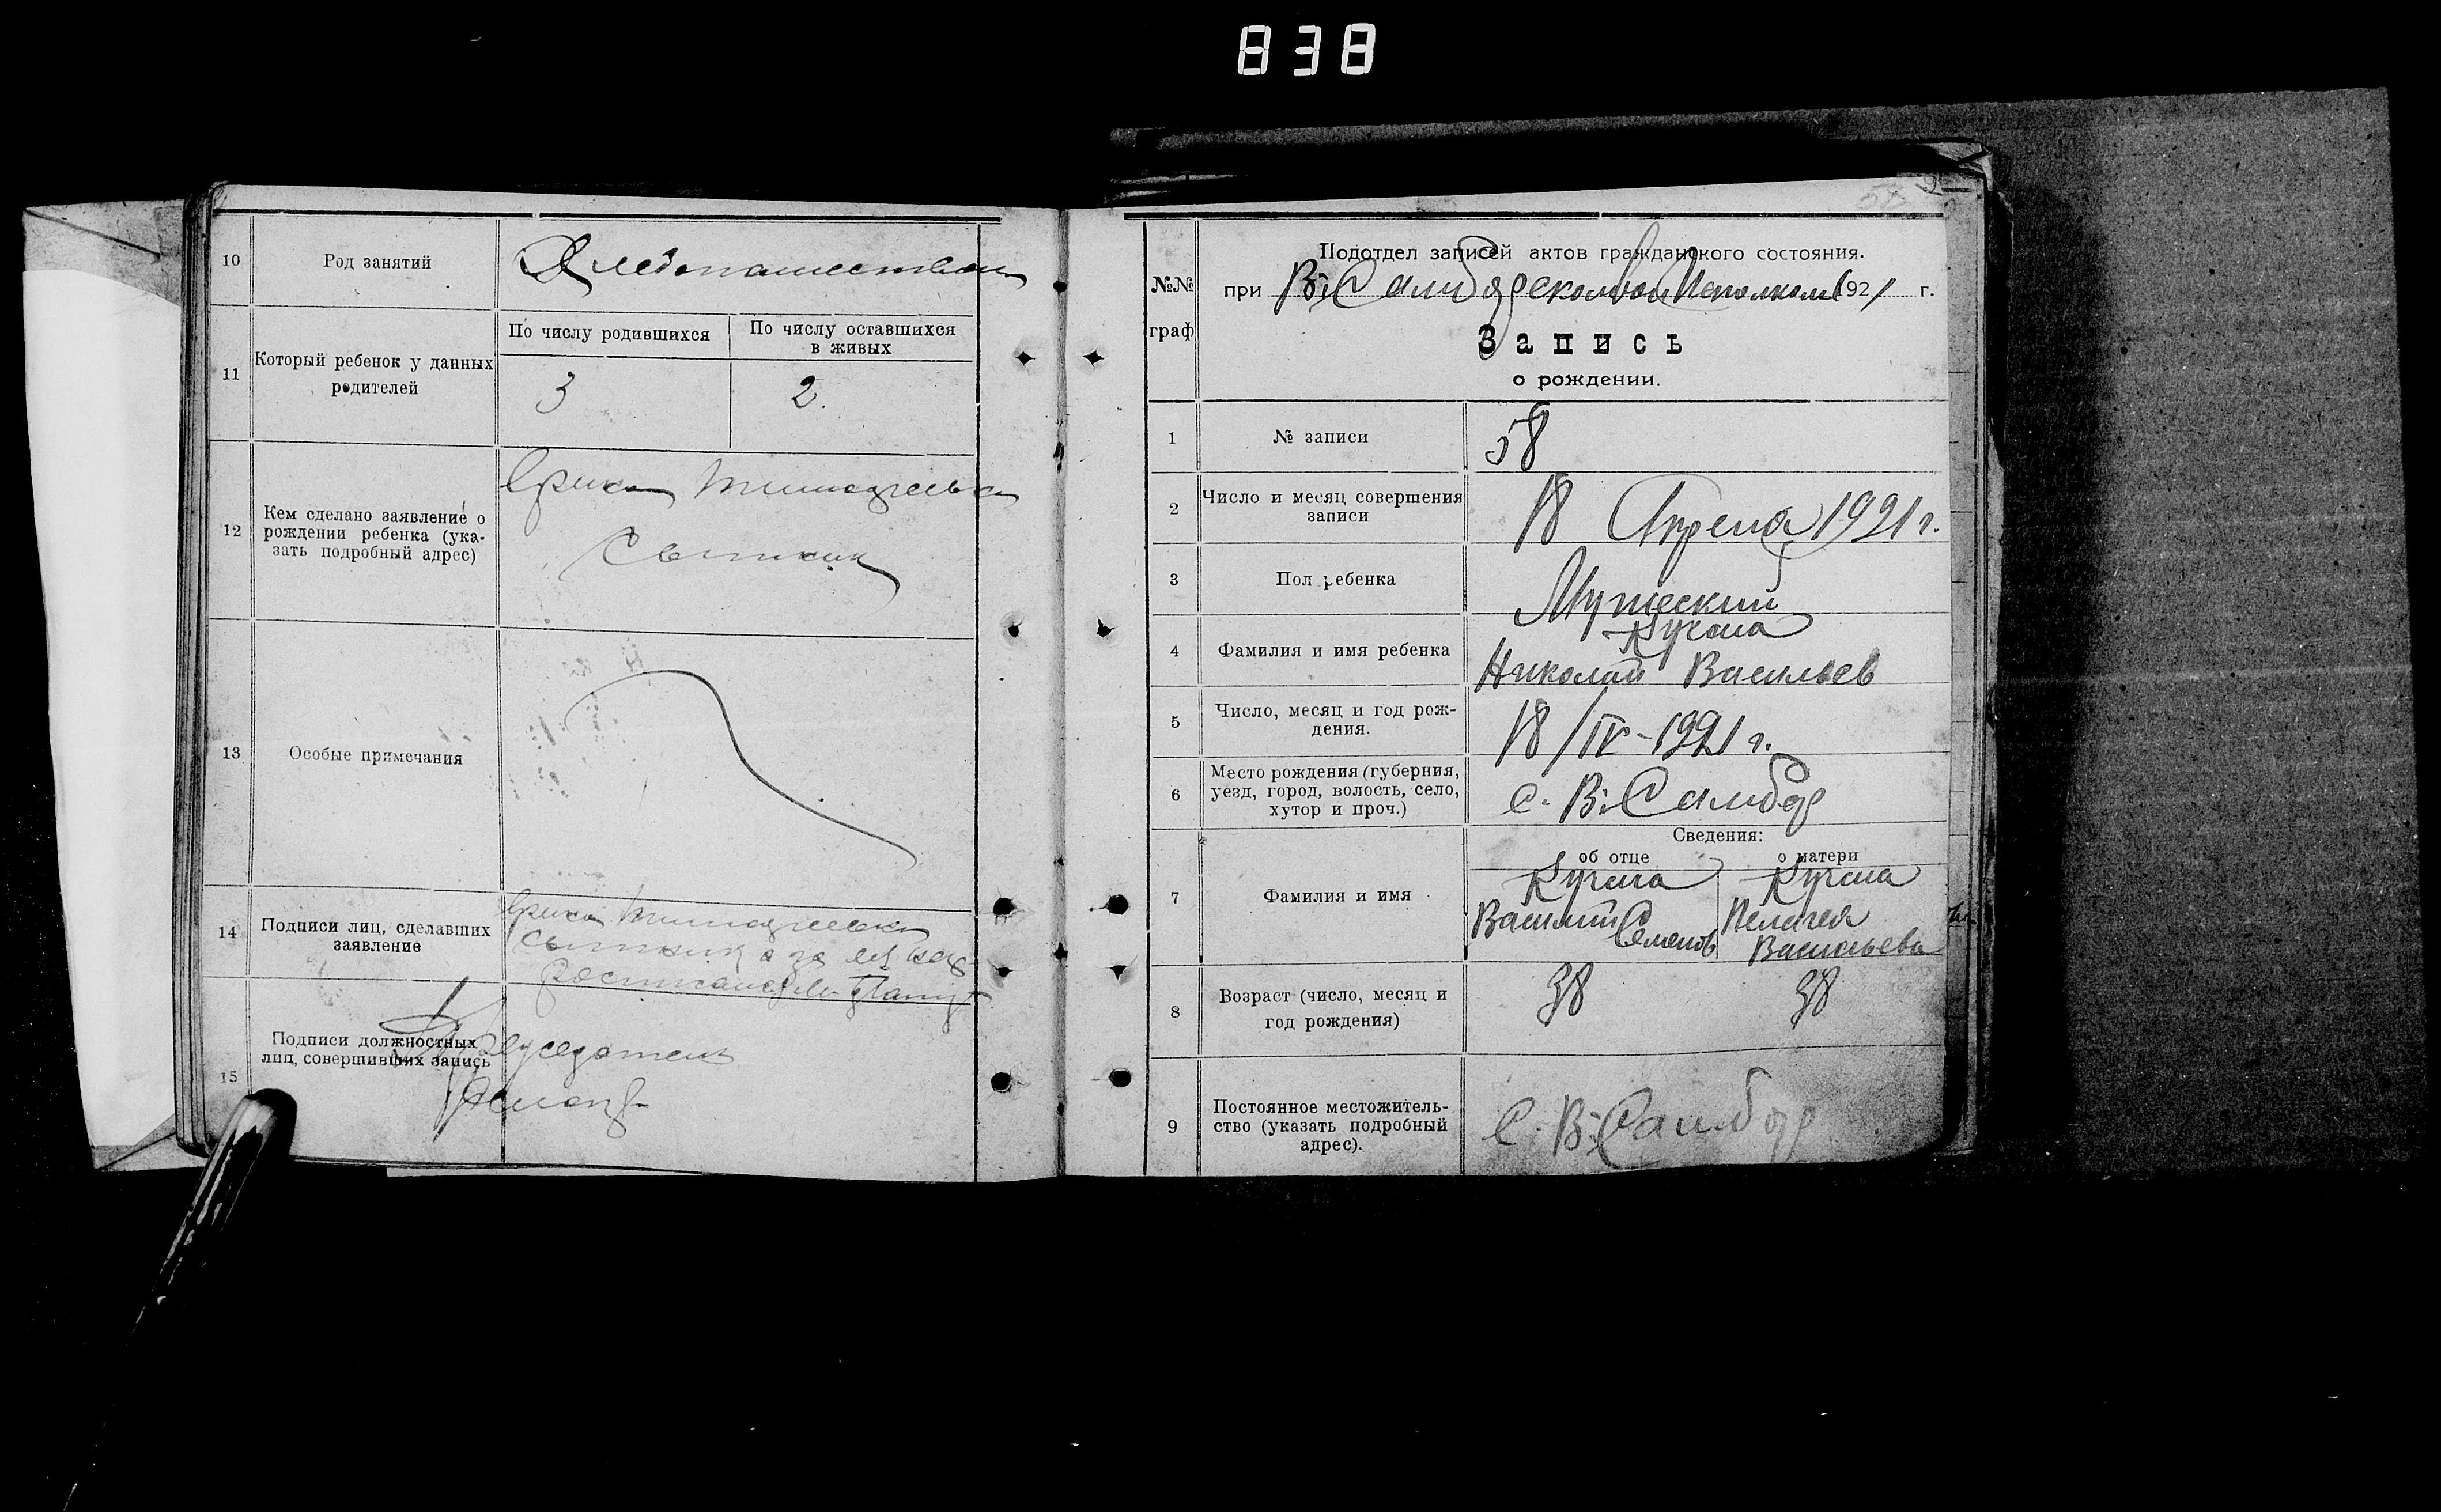 838
10
Род занятий
Хлебопашеством
11
Который ребенок у данных
родителей
По числу родившихся
По числу оставшихся
в живых
3
2.
12
Кем сделано заявление о
рождении ребенка (ука-
зать подробный адрес)
Сытник
13
Особые примечания
14
Подписи лиц, сделавших
заявление
Сытник а за
15
Подписи должностных
лиц, совершивших запись
Председатель
58
№№
граф
Подотдел записей актов гражданского состояния.
при В; Самборском Вол Исполкоме 1921 г.
Запись
о рождении.
1
№ записи
58
2
Число и месяц совершения
записи
18 Апреля 1921 г.
3
Пол ребенка
Мужеский
4
Фамилия и имя ребенка
Кучма
Николай Васильев
5
Число, месяц и год рож-
дения.
18/IV-1921 г.
6
Место рождения (губерния,
уезд, город, волость, село,
хутор и проч.)
с. В; Самбор
Сведения:
об отце
о матери
7
Фамилия и имя
Кучма
Василий
Семенов
Кучма
Пелагея
Васильева
8
Возраст (число, месяц и
год рождения)
38
38
9
Постоянное местожитель-
ство (указать подробный
адрес).
С. В; Самбор